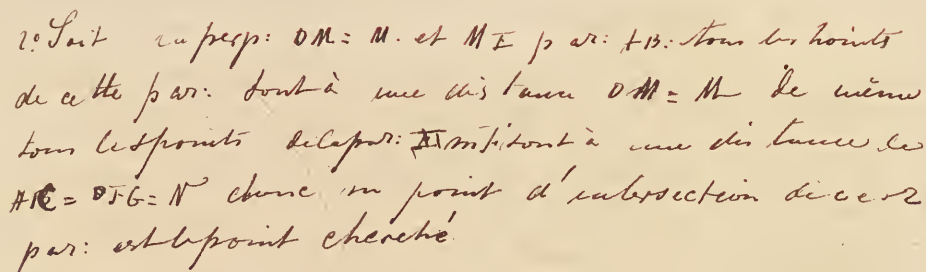 2º Soit perp: DM = M. et MI par: AB: tous les points
de cette par: sont à une distance DM = M de même
tous les points de la par: sont à une distance de
= N donc point d'intersection de ces 2
par: est le point cherché